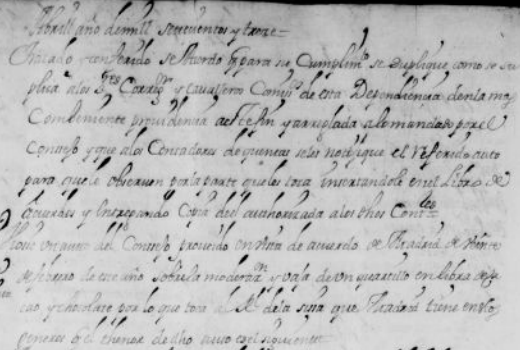 Abrill año de mill setecientos y treze =
Tratado y conferido se Acordo q para su Cumplimto se suplique como se su
plica a los Sres Corregr y Cavalleros Comisos de esta Dependiencia den la mas
Combeniente providencia a este fin y arreglada a lo mandado por el
Consejo y que a los Contadores de quentas se les notifique el referido auto
para que le observen por la parte que les toca insertandole en el Libro de
Acuerdos y entregando Copia del authorizada a los dhos Contres
un auto del Consejo proveido en vista de acuerdo de Madrid de veinte
de febrero de este año sobre la moderazn y vaja de un quartillo en libra de
cao y chocolate por lo que toca al Rl de la sisa que Madrid tiene en los
generos q el thenor de dho auto es el siguiente